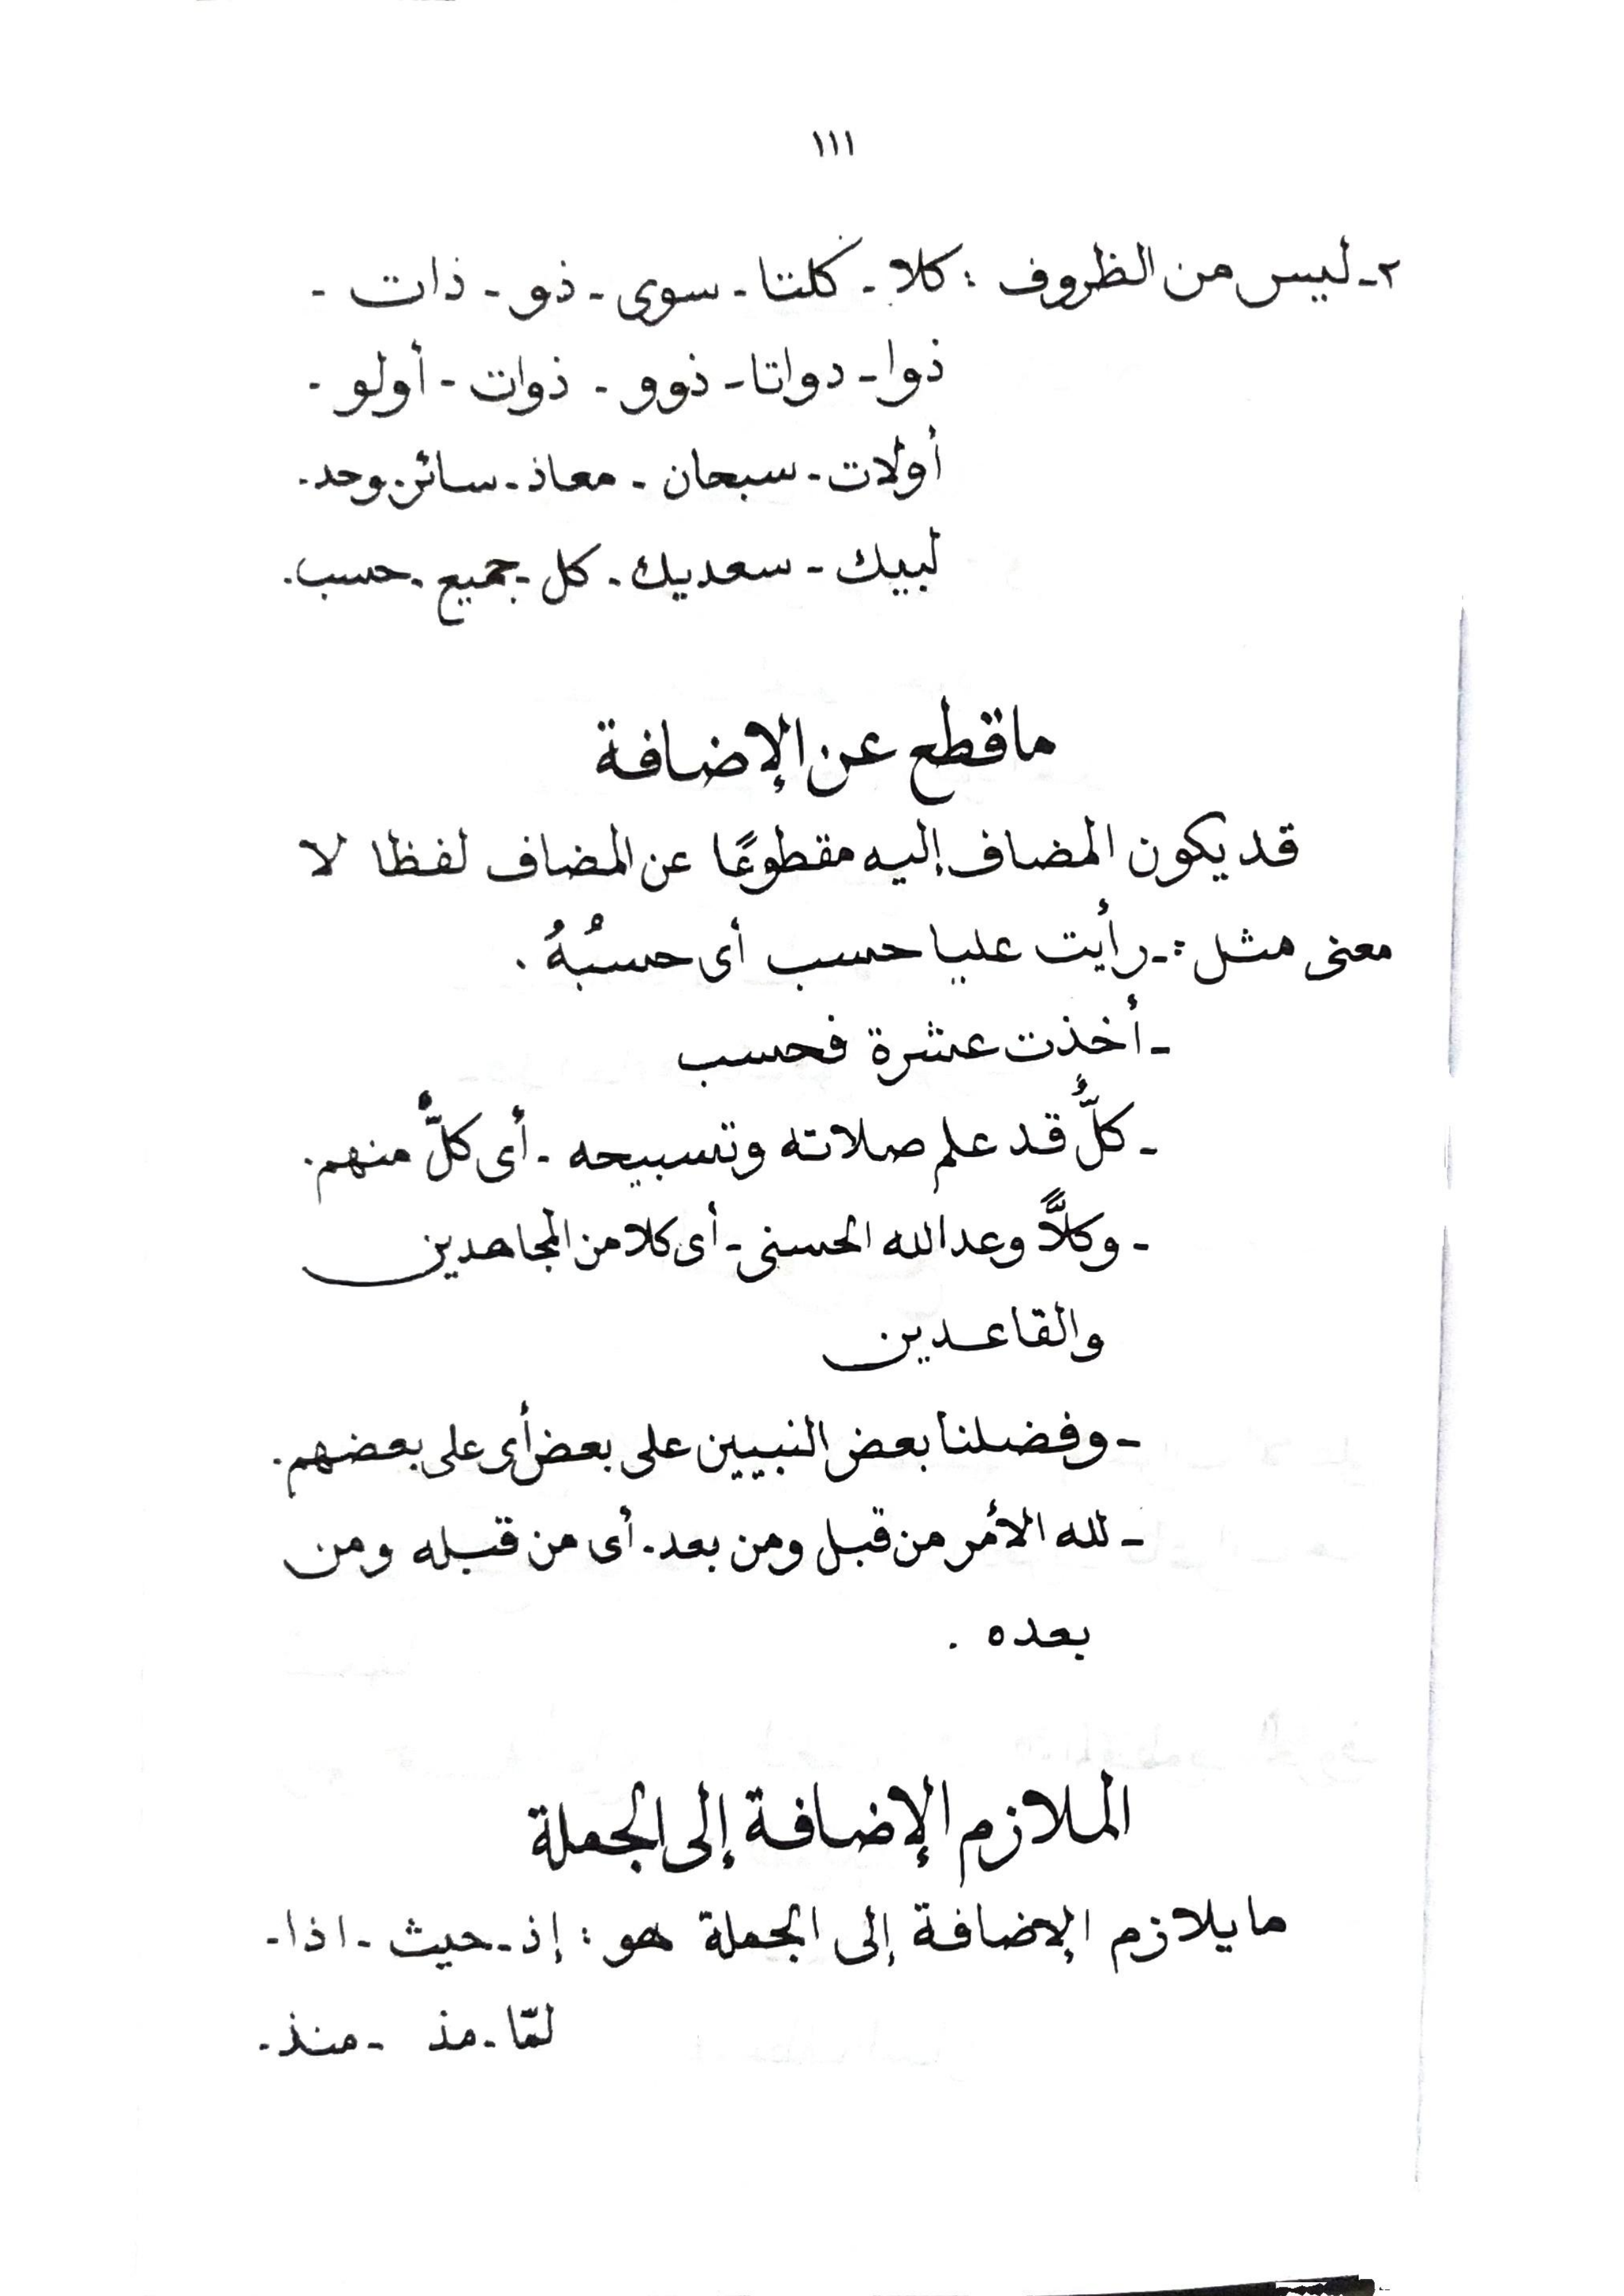 ١١١
٢ـ ليس من الظروف : كلا ـ كلتا ـ سوى ـ ذو ـ ذات ـ
ذوا ـ دواتا ـ ذوو ـ ذوات ـ أولو ـ
أولات ـ سبحان ـ معاذ ـ سائر ـ وحد ـ
لبيك ـ سعديك ـ كل ـ جميع ـ حسب .
ماقطع عن الإضافة
قد يكون المضاف إليه مقطوعًا عن المضاف لفظا لا
معنى مثل : ـ رأيت عليا حسب أى حسبُهُ .
ـ أخذت عشرة فحسب
ـ كلٌّ قد علم صلاته وتسبيحه ـ أى كلٌّ منهم .
ـ وكلاًّ وعد الله الحسنى ـ أى كلا من المجاهدين
والقاعدين
ـ وفضلنا بعض النبيين على بعض أى على بعضهم .
ـ لله الأمر من قبل ومن بعد . أى من قبله ومن
بعده .
الملازم الإضافة إلى الجملة
ما يلازم الإضافة إلى الجملة هو : إذ ـ حيث ـ اذا ـ
لمّا ـ مذ ـ منذ ـ